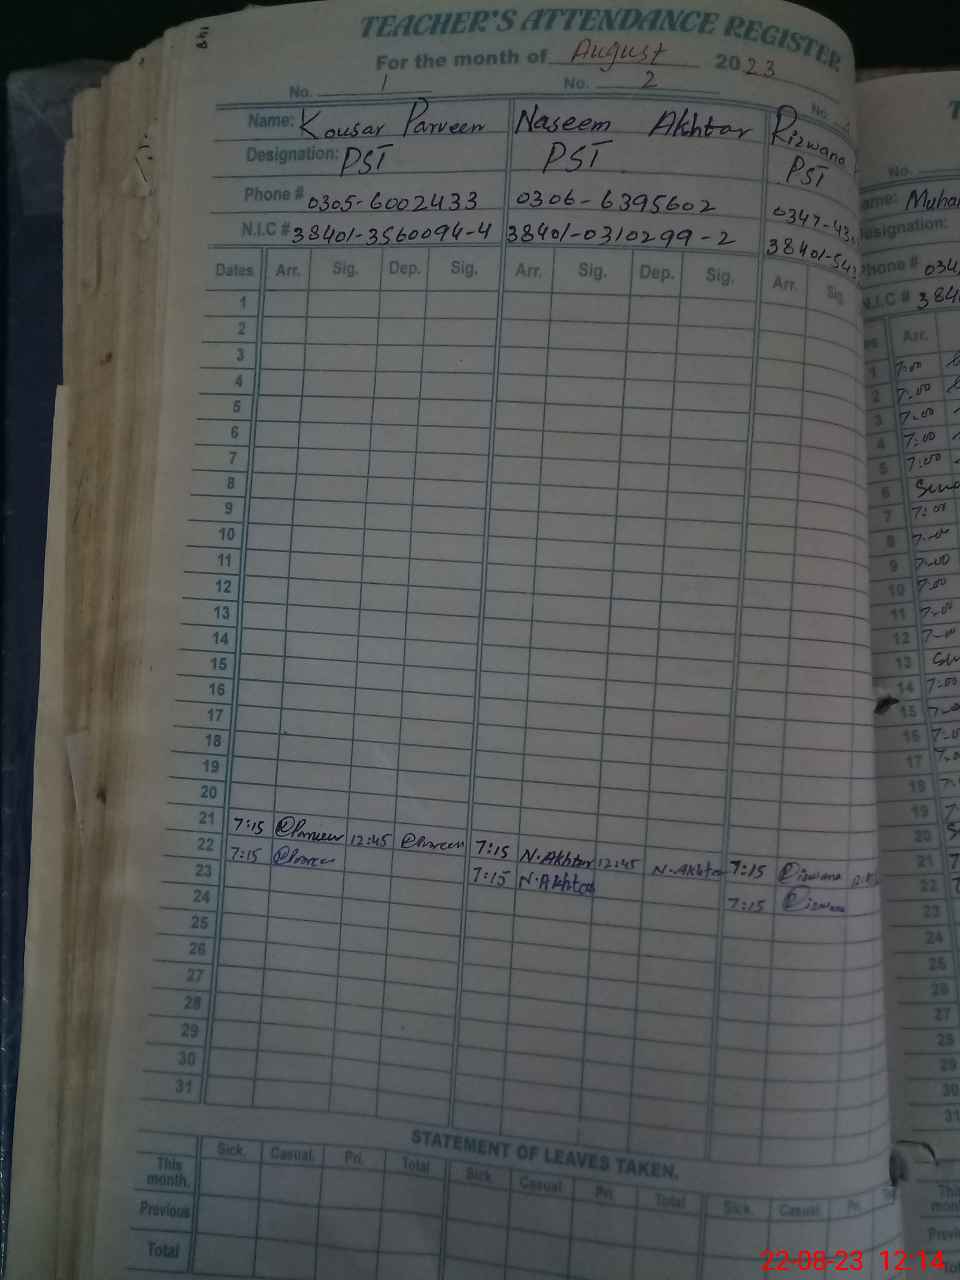 TEACHER'S ATTENDANCE REGISTER
For the month of August 2023
No. 1 No. 2 No.
Name: Kousar Parveen Naseem Akhtar Rizwana
Designation: PST PST PST
Phone # 0305-6002433 0306-6395602 0347-43
N.I.C # 38401-3560094-4 38401-0310299-2 38401-543
Dates Arr. Sig. Dep. Sig. Arr. Sig. Dep. Sig. Arr. Sig.
1
2
3
4
5
6
7
8
9
10
11
12
13
14
15
16
17
18
19
20
21 7:15 Parveen 12:45 Parveen 7:15 N.Akhtar 12:45 N.Akhtar 7:15 Rizwana
22 7:15 Parveen 7:15 N.Akhtar 7:15 Rizwana
23
24
25
26
27
28
29
30
31
STATEMENT OF LEAVES TAKEN.
Sick. Casual. Pri. Total Sick Casual Pri. Total Sick. Casual Pri.
This month.
Previous
Total
No.
ame: Muha
esignation:
hone # 034
N.I.C # 384
es Arr.
1 7:00
2 7:00
3 7:00
4 7:00
5 7:00
6 Sun
7 7:00
8 7:00
9 7:00
10 7:00
11 7:00
12 7:00
13 Su
14 7:00
15 7:00
16 7:00
17 7:00
18 7
19 7
20 S
21 7
22 7
23
24
25
26
27
28
29
30
31
22-08-23 12:14